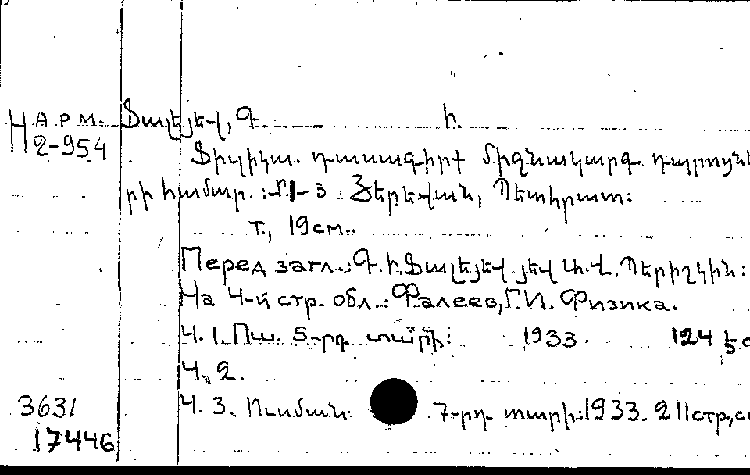 Арм. Ֆալեյեվ, Գ. Ի.
Н 2-954
Ֆիզիկա. դասագիրք միջնակարգ դպրոցնե
րի համար. 1-3 Յերեվան, Պետհրատ:
т., 19 см..
Перед загл.: Գ. Ի. Ֆալեյեվ յեվ Պերիշկին:
На 4-й стр. обл.: Фалеев, Г. И. Физика.
Ч. 1. 5-րդ տարի: 1933 124
Ч. 2.
3631 Ч. 3. Ուսման 7-րդ տարի. 1933. 211 стр,
17446